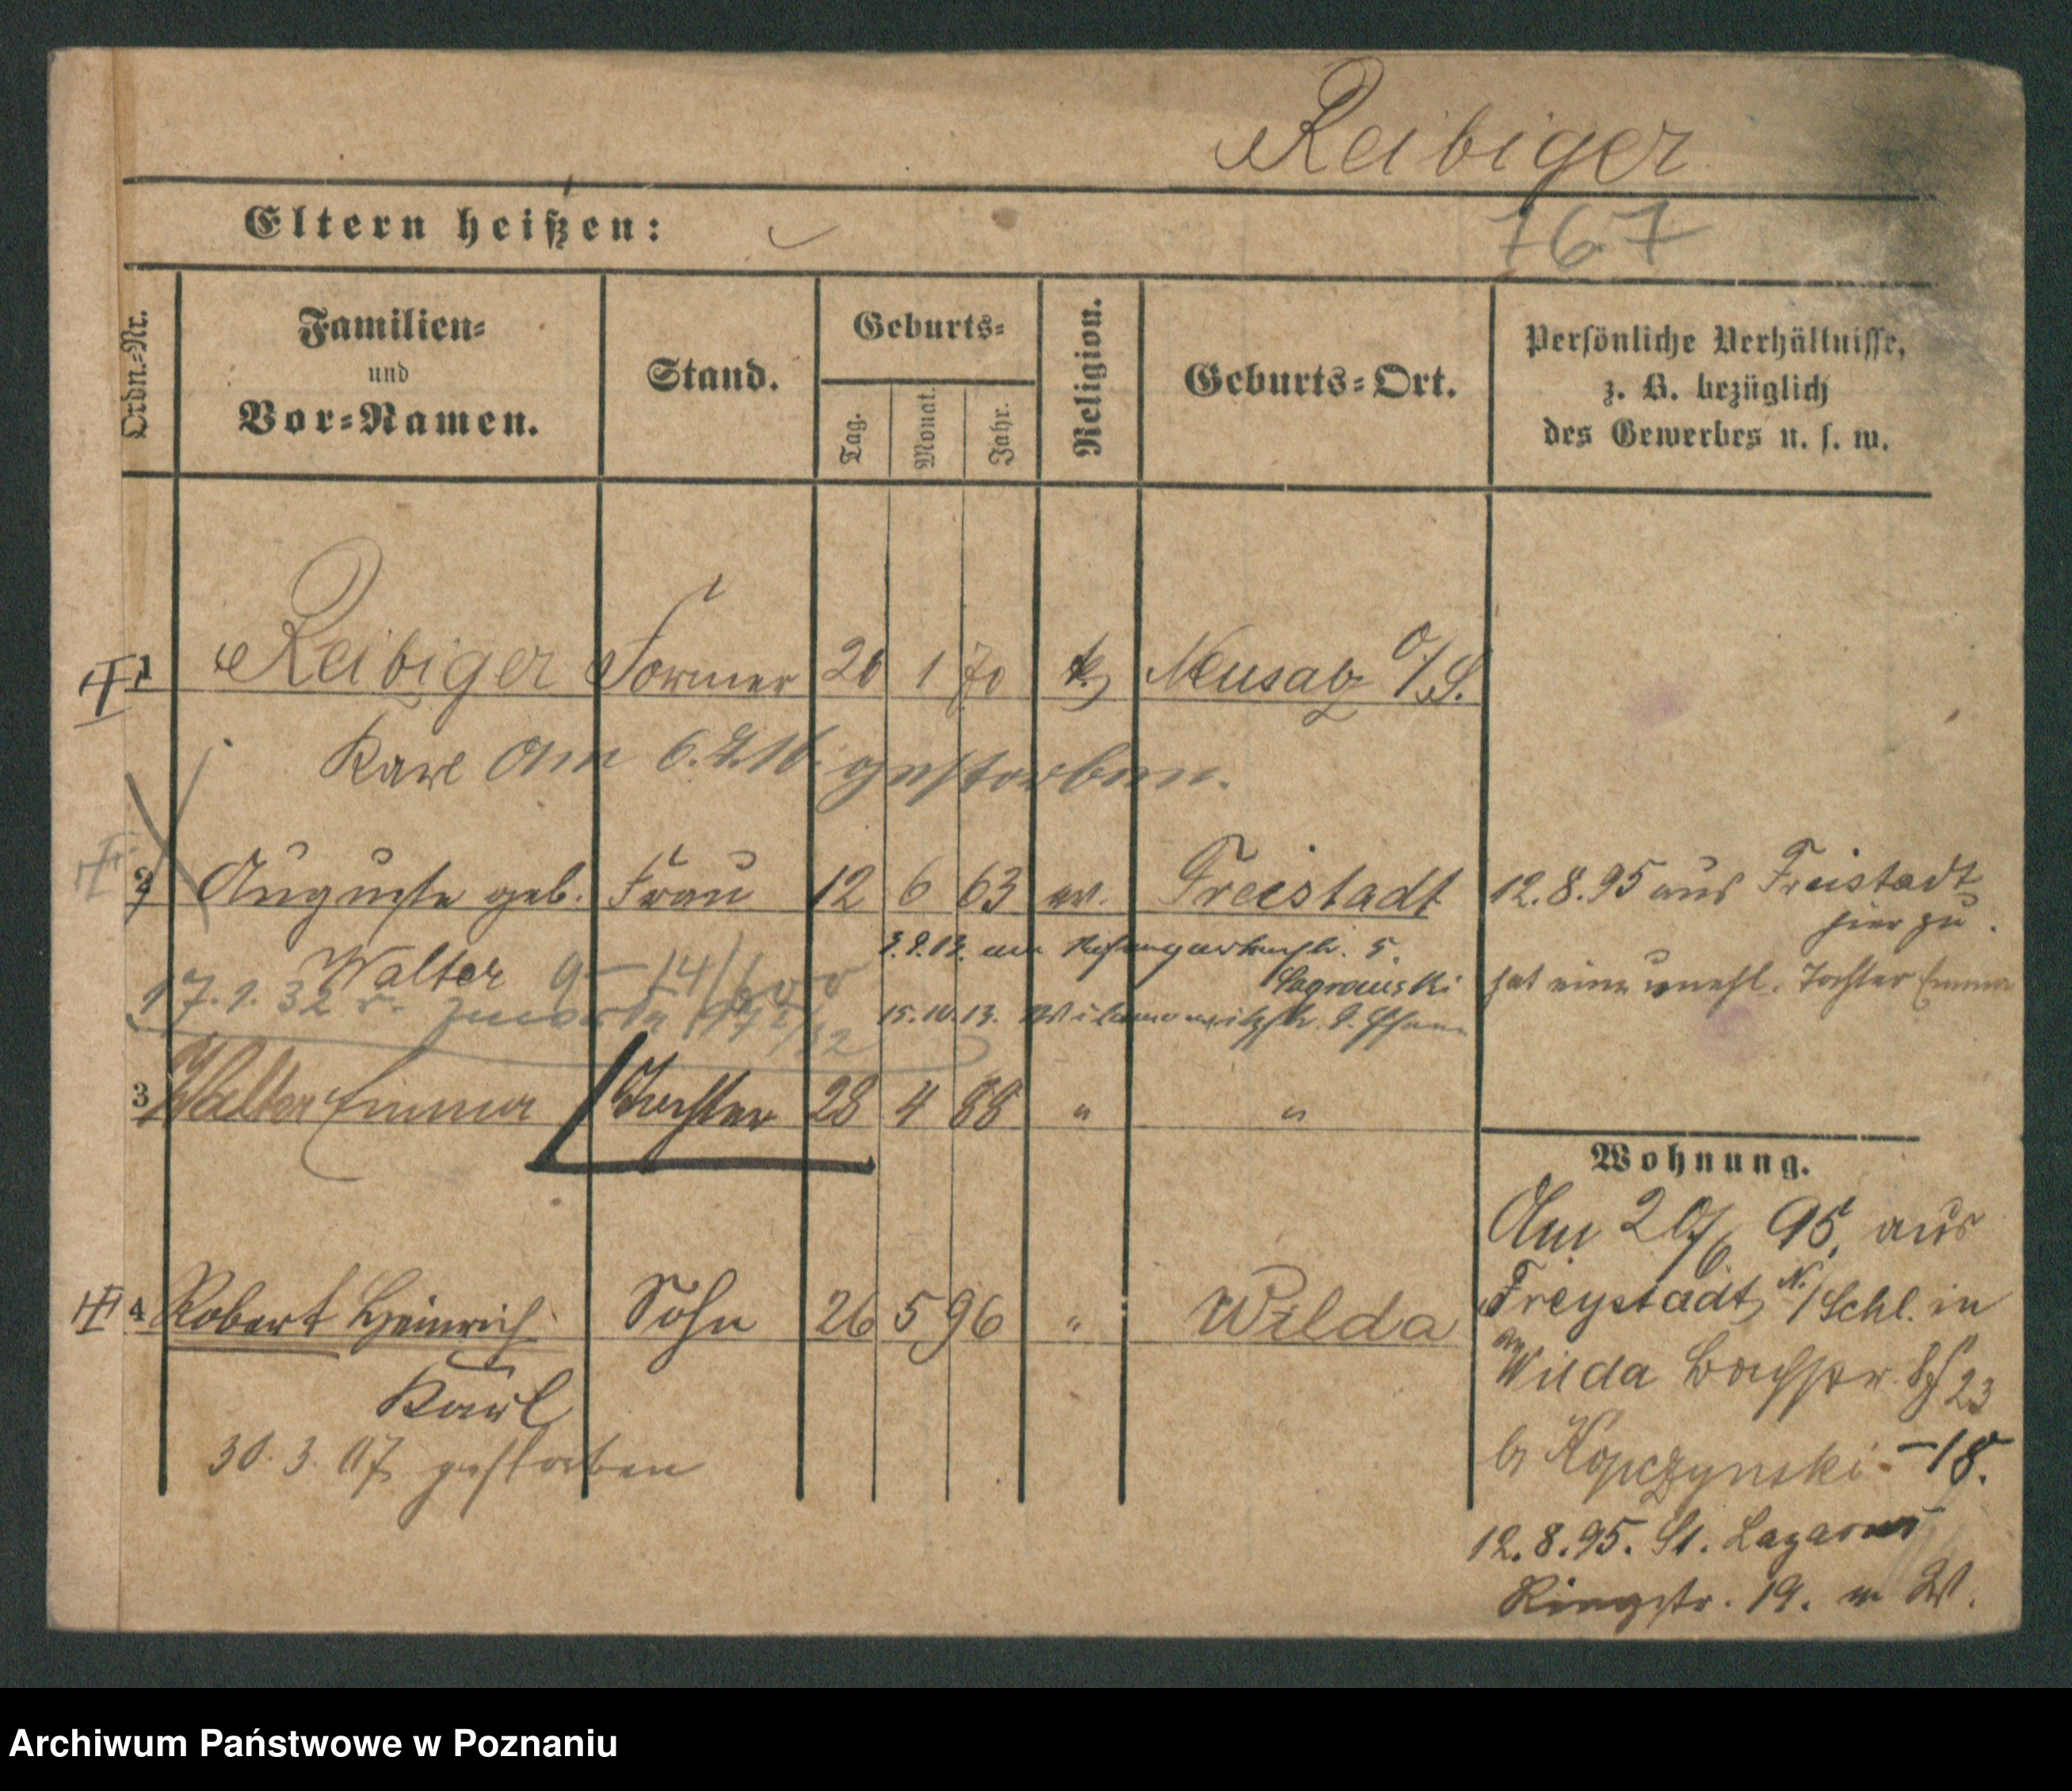 Reibiger
767
Eltern heißen:
Ordn.-Nr.
Familien-
und
Vor-Namen.
Stand.
Geburts-
Tag.
Monat.
Jahr.
Religion.
Geburts-Ort.
Persönliche Verhältnisse,
z. B. bezüglich
des Gewerbes u. s. w.
1 Reibiger Former 26 1 70 k. Neusalz O/S.
Karl Am 6. gestorben.
2 Auguste geb. Frau 12 6 63 ev. Freistadt 12.8.95 aus Freistadt
hier zu.
Walter
3.9.13. 5.
hat eine unehl. Tochter Emma
17.1.32
15.10.13.
3 Walter Emma Tochter 28 4 88 " "
4 Robert Heinrich Sohn 26 5 96 " Wilda
Karl
30. 3. 07 gestorben
Wohnung.
Am 20/6 95, aus
Freystadt N./Schl. in
Wilda Bachstr. 23
b Kopczynski - 18.
12.8.95. St. Lazarus
Ringstr. 19. W.
Archiwum Państwowe w Poznaniu